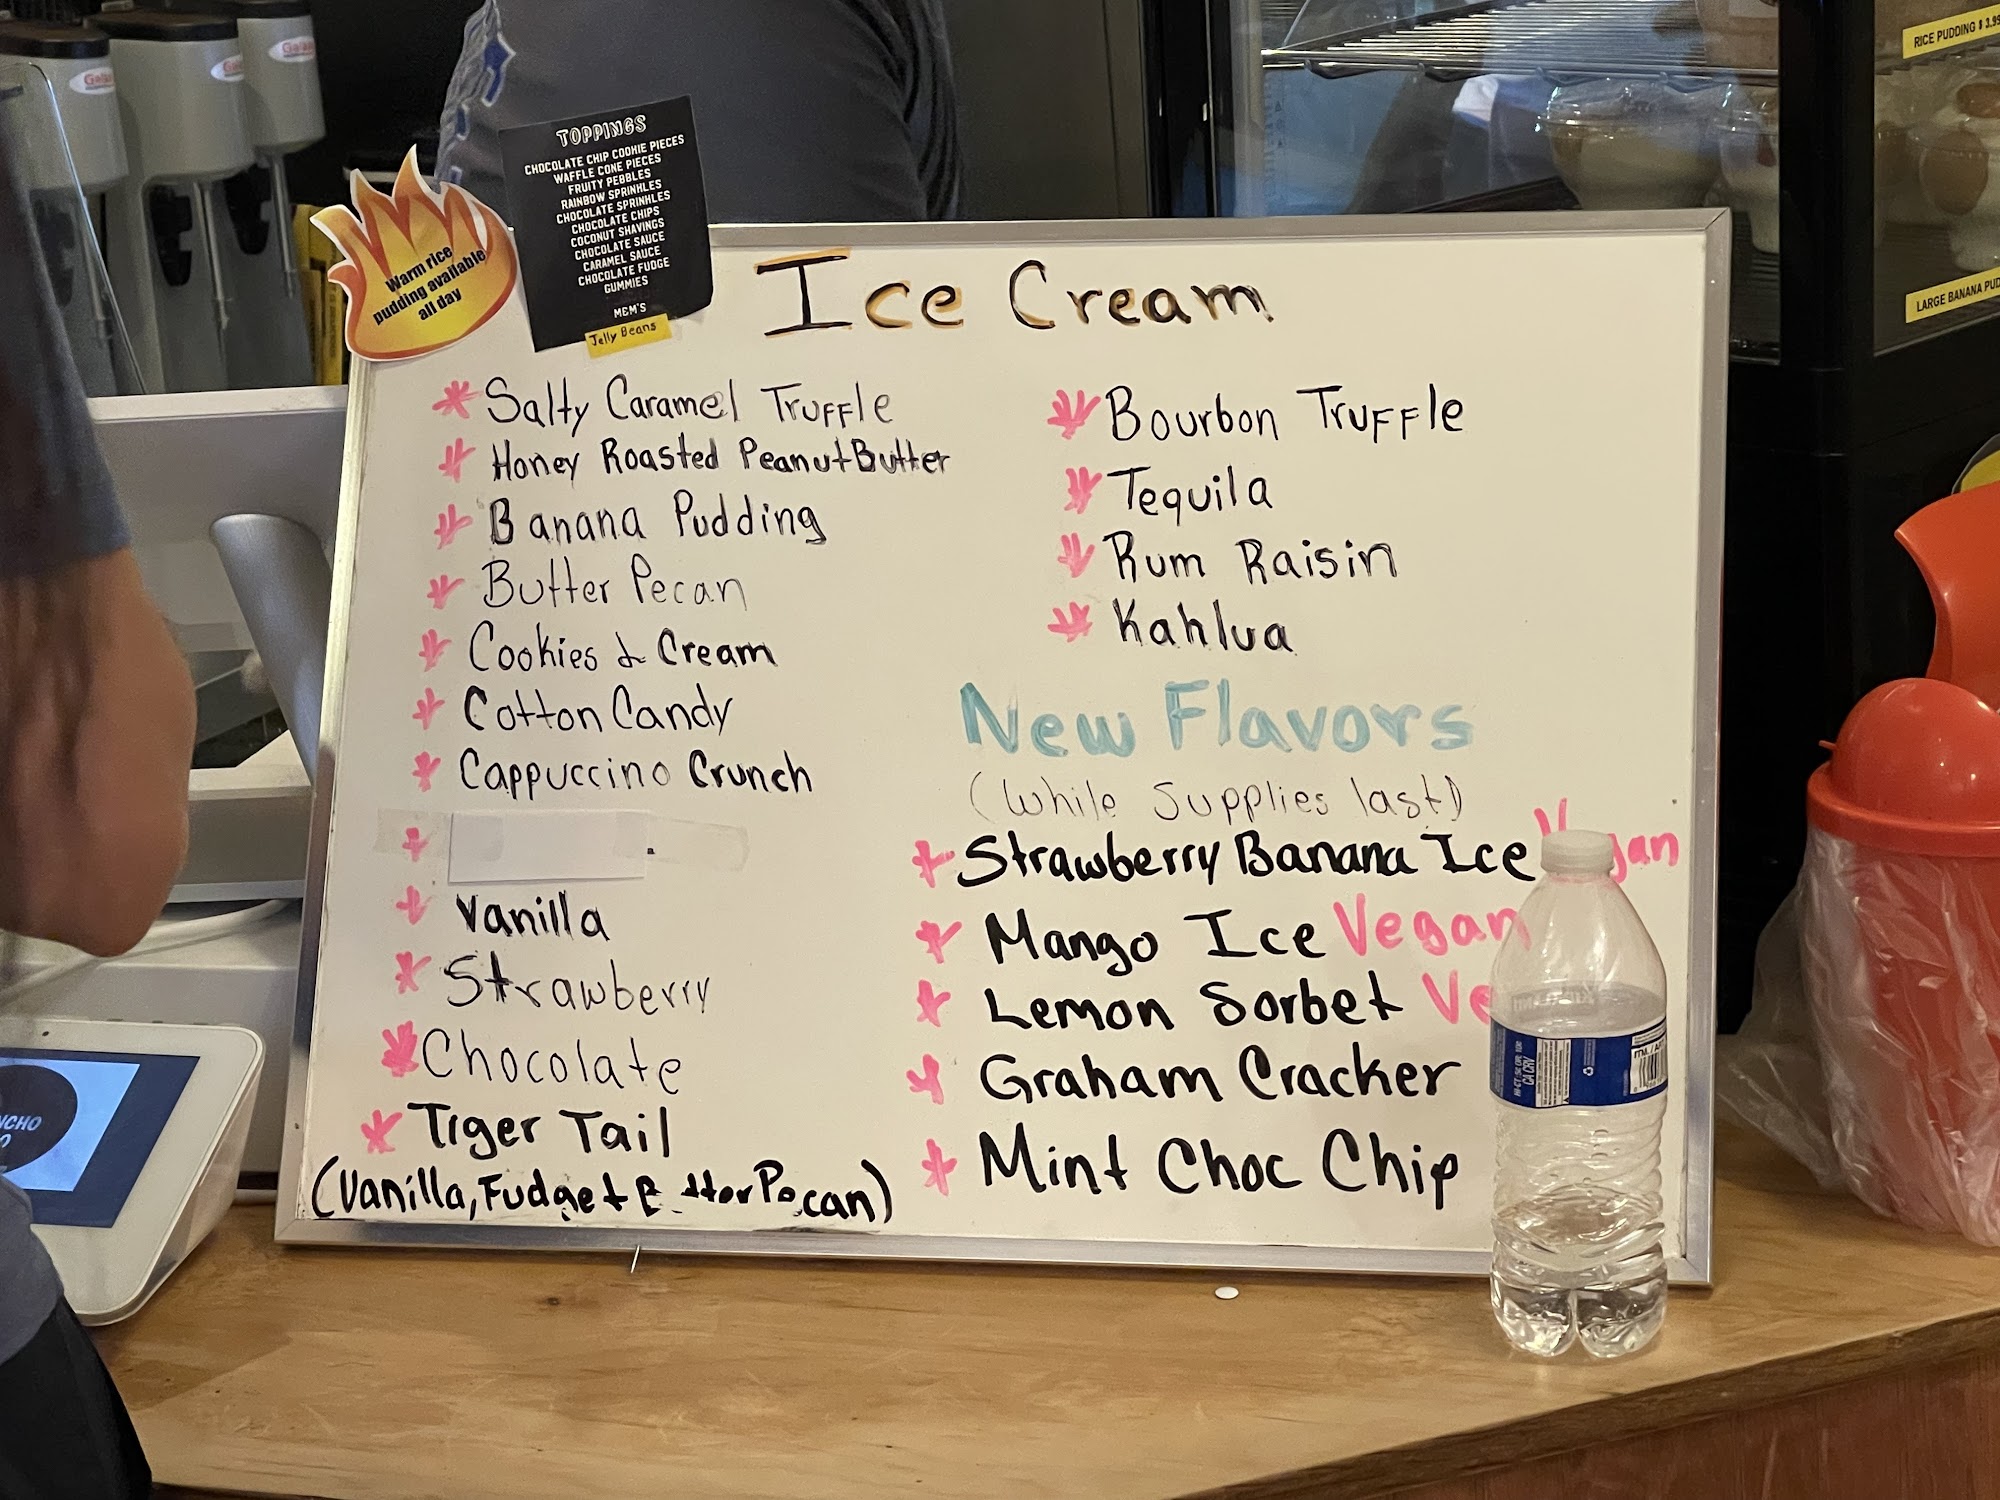 TOPPINGS
CHOCOLATE CHIP COOKIE PIECES
WAFFLE CONE PIECES
FRUITY PEBBLES
RAINBOW SPRINKLES
CHOCOLATE SPRINKLES
CHOCOLATE CHIPS
COCONUT SHAVINGS
CHOCOLATE SAUCE
CARAMEL SAUCE
CHOCOLATE FUDGE
GUMMIES
M&M'S
Jelly Beans
Warm rice
pudding available
all day
Ice Cream
Salty Caramel Truffle
Honey Roasted Peanut Butter
Banana Pudding
Butter Pecan
Cookies & Cream
Cotton Candy
Cappuccino Crunch
Vanilla
Strawberry
Chocolate
Tiger Tail
(Vanilla, Fudge + B tter Pecan)
Bourbon Truffle
Tequila
Rum Raisin
Kahlua
New Flavors
(While Supplies last)
Strawberry Banana Ice Vegan
Mango Ice Vegan
Lemon Sorbet Ve
Graham Cracker
Mint Choc Chip
RICE PUDDING $ 3.99
LARGE BANANA PUD
CA CRV
NCHO
O